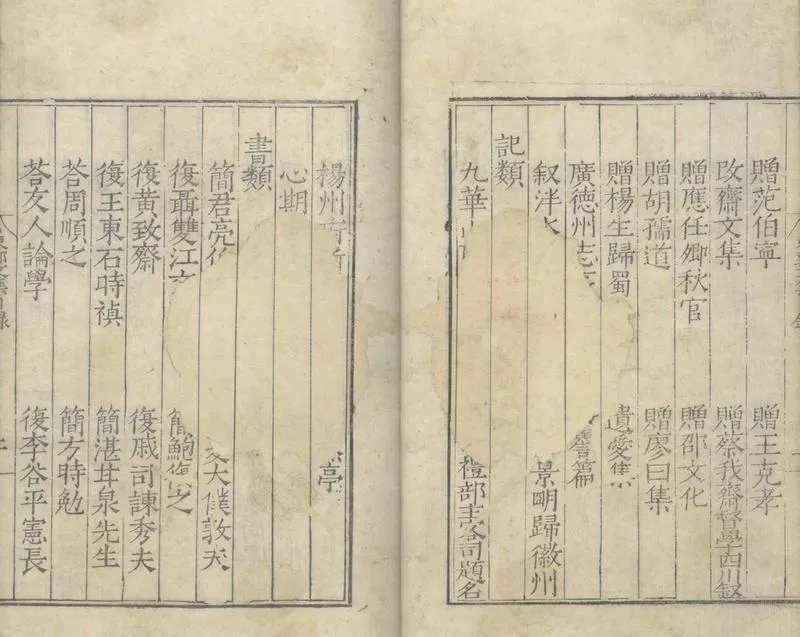 贈范伯寧　贈王克孝
改齋文集　贈蔡我齋督學四川敘
贈應仕卿秋官　贈邵文化
贈胡孺道　贈廖曰集
贈楊生歸蜀　遺愛集
廣德州志　篇
叙泮　景明歸徽州
記類
九華　禮部主客司題名
楊州　亭
心期
書類
簡君亮　大僕敦夫
復聶雙江　簡鮑之
復黃致齋　復戚司諫秀夫
復王東石時禎　簡湛甘泉先生
荅周順之　簡方時勉
荅友人論學　復李谷平憲長